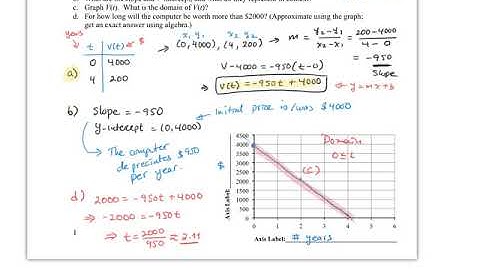 c. Graph V(t). What is the domain of V(t)?
d. For how long will the computer be worth more than $2000? (Approximate using the graph;
get an exact answer using algebra.)
years
t V(t) $
0 4000
4 200
a)
x₁ y₁ x₂ y₂
(0, 4000), (4, 200)
m = y₂-y₁ / x₂-x₁ = 200-4000 / 4-0
= -950
slope
V-4000 = -950(t-0)
V(t) = -950t + 4000
y=mx+b
b) slope = -950
y-intercept = (0,4000)
initial price is/was $4000
The computer
depreciates $950
per year.
d) 2000 = -950t + 4000
⇒ -2000 = -950t
⇒ t = 2000/950 ≈ 2.11
Domain
0≤t
(c)
$
Axis Label:
4500
4000
3500
3000
2500
2000
1500
1000
500
0
0 1 2 3 4 5 6
Axis Label: # years